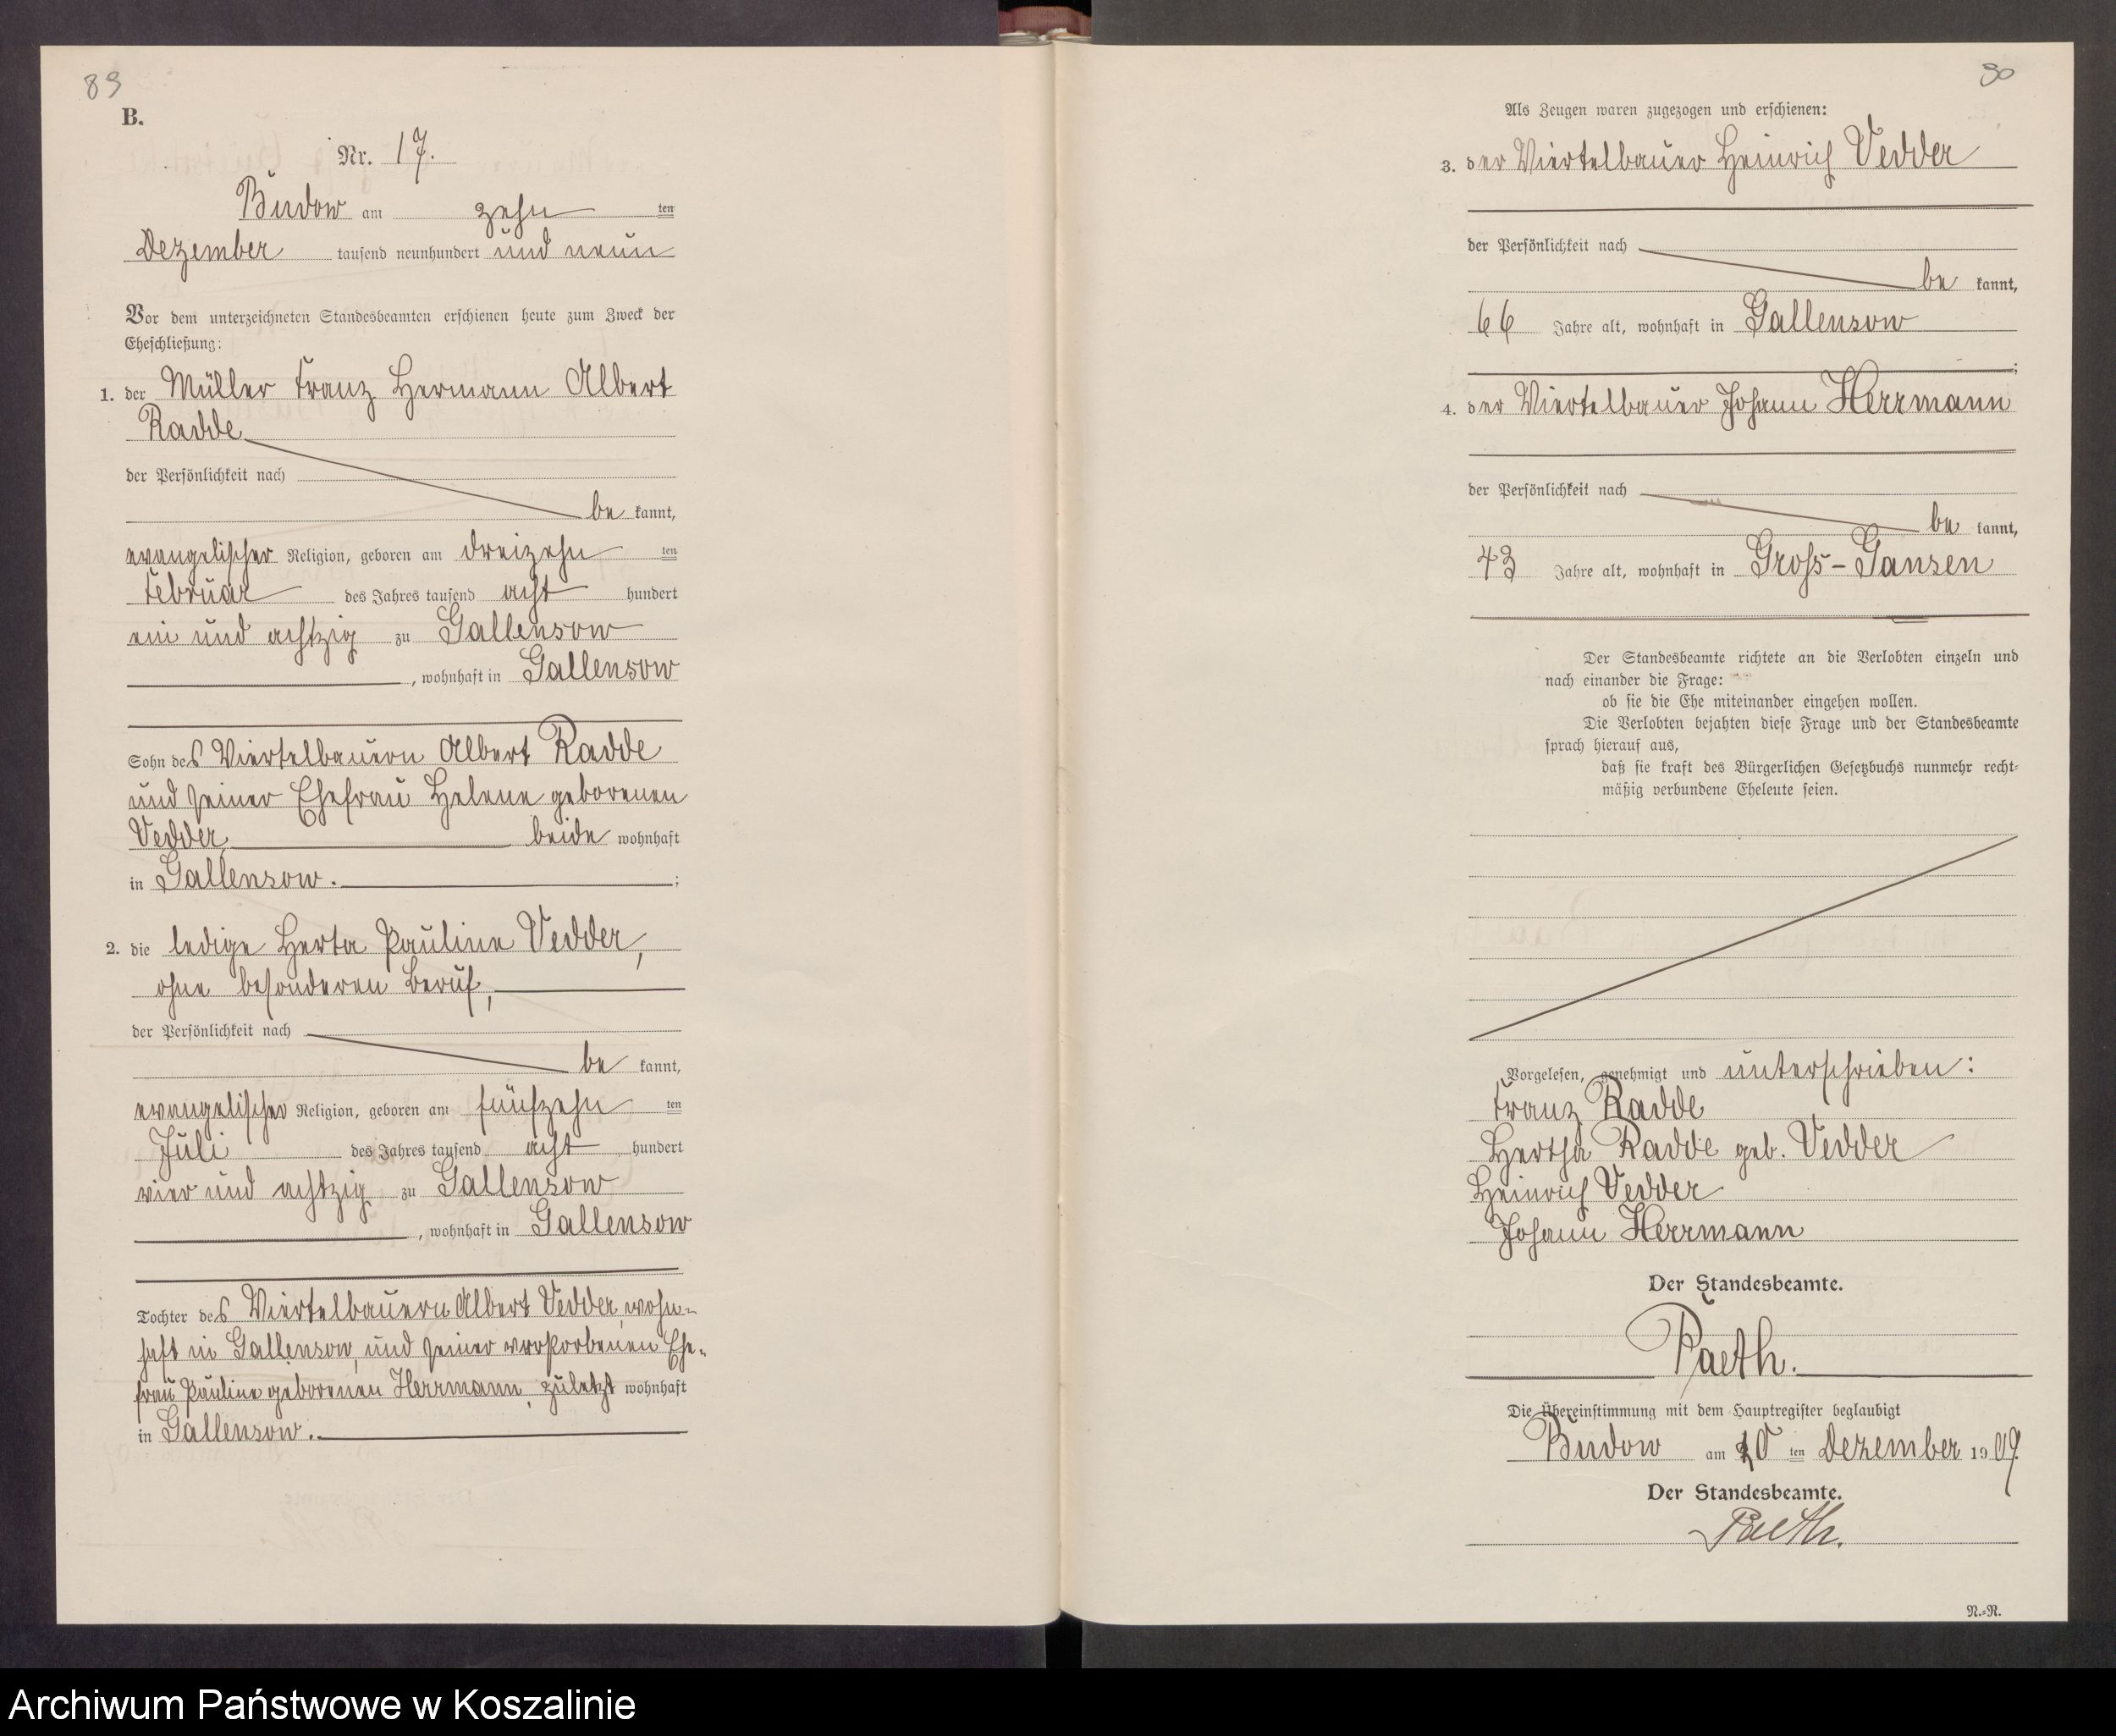 89
B.
Nr. 17.
Budow am zehn ten
Dezember tausend neunhundert und neun
Vor dem unterzeichneten Standesbeamten erschienen heute zum Zweck der
Eheschließung:
1. der Müller Franz Hermann Albert
Radde
der Persönlichkeit nach
be kannt,
evangelischer Religion, geboren am dreizehn ten
Februar des Jahres tausend acht hundert
ein und achtzig zu Gallensow
, wohnhaft in Gallensow
Sohn des Viertelbauern Albert Radde
und seiner Ehefrau Helene geborenen
Vedder beide wohnhaft
in Gallensow. ;
2. die ledige Herta Pauline Vedder,
ohne besonderen Beruf,
der Persönlichkeit nach
be kannt,
evangelischer Religion, geboren am fünfzehn ten
Juli des Jahres tausend acht hundert
vier und achtzig zu Gallensow
, wohnhaft in Gallensow
Tochter des Viertelbauern Albert Vedder, wohn-
haft in Gallensow, und seiner verstorbenen Ehe-
frau Pauline geborenen Herrmann, zuletzt wohnhaft
in Gallensow.
90
Als Zeugen waren zugezogen und erschienen:
3. der Viertelbauer Heinrich Vedder
der Persönlichkeit nach
be kannt,
66 Jahre alt, wohnhaft in Gallensow
;
4. der Viertelbauer Johann Herrmann
der Persönlichkeit nach
be kannt,
43 Jahre alt, wohnhaft in Gross-Gansen
Der Standesbeamte richtete an die Verlobten einzeln und
nach einander die Frage:
ob sie die Ehe miteinander eingehen wollen.
Die Verlobten bejahten diese Frage und der Standesbeamte
sprach hierauf aus,
daß sie kraft des Bürgerlichen Gesetzbuchs nunmehr recht-
mäßig verbundene Eheleute seien.
Vorgelesen, genehmigt und unterschrieben:
Franz Radde
Hertha Radde geb. Vedder
Heinrich Vedder
Johann Herrmann
Der Standesbeamte.
Paeth.
Die Übereinstimmung mit dem Hauptregister beglaubigt
Budow am 10 ten Dezember 1909.
Der Standesbeamte.
Paeth.
N.-N.
Archiwum Państwowe w Koszalinie